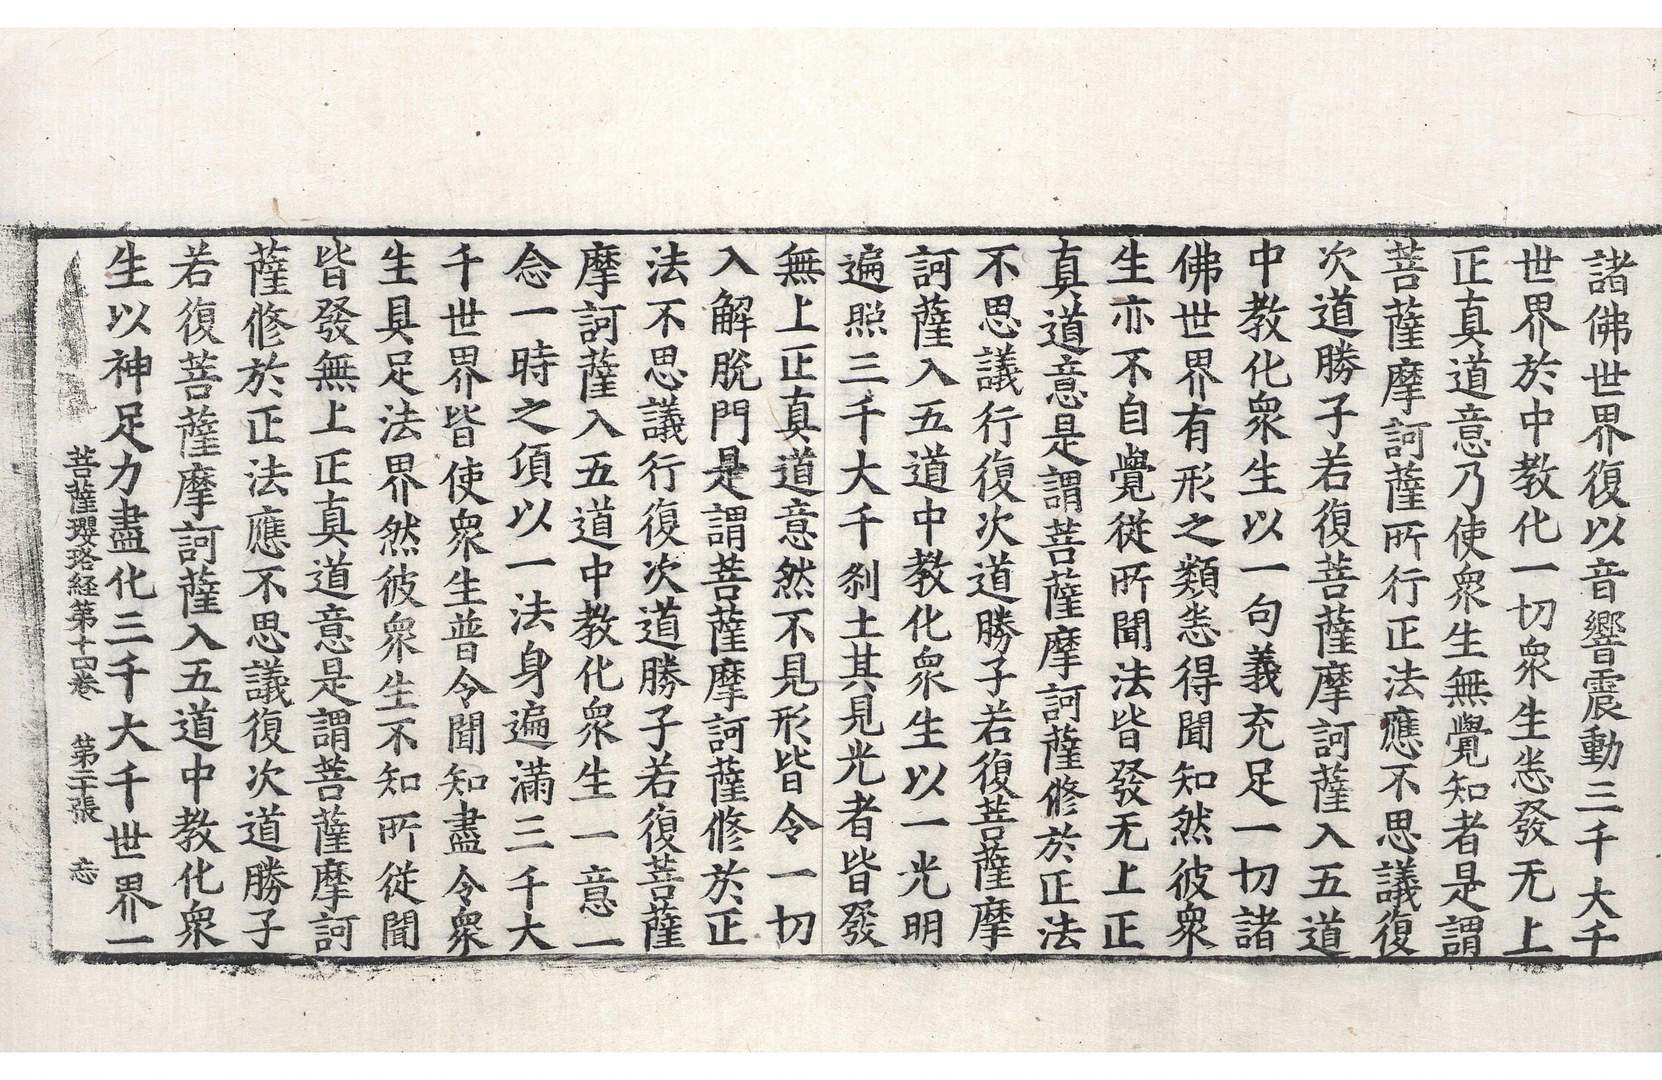 諸佛世界復以音響震動三千大千
世界於中教化一切衆生悉發无上
正真道意乃使衆生無覺知者是謂
菩薩摩訶薩所行正法應不思議復
次道勝子若復菩薩摩訶薩入五道
中教化衆生以一句義充足一切諸
佛世界有形之類悉得聞知然彼衆
生亦不自覺從所聞法皆發无上正
真道意是謂菩薩摩訶薩修於正法
不思議行復次道勝子若復菩薩摩
訶薩入五道中教化衆生以一光明
遍照三千大千刹土其見光者皆發
無上正真道意然不見形皆令一切
入解脫門是謂菩薩摩訶薩修於正
法不思議行復次道勝子若復菩薩
摩訶薩入五道中教化衆生一意一
念一時之頃以一法身遍滿三千大
千世界皆使衆生普令聞知盡令衆
生具足法界然彼衆生不知所從聞
皆發無上正真道意是謂菩薩摩訶
薩修於正法應不思議復次道勝子
若復菩薩摩訶薩入五道中教化衆
生以神足力盡化三千大千世界一
菩薩瓔珞経第十四卷 第二十張 忘